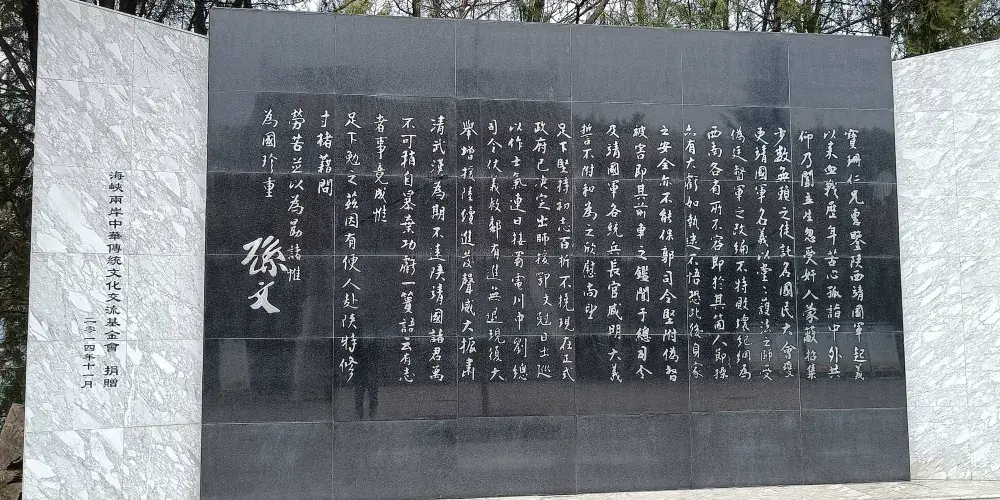 寶珊仁兄惠鑒陝西靖國軍起義
以來血戰歷年苦心孤詣中外共
仰乃閻立生忽受奸人蒙蔽招集
少數無賴之徒託名國民大會變
更靖國軍名義以堂堂護法之師受
偽廷督軍之改編不特敗壞紀綱為
西南各省所不容即於其箇人節操
亦有大虧如執迷不悟恐此後身家
之安全亦不能保郭司令堅附偽督
被害即其前車之鑑聞于總司令
及靖國軍各統兵長官咸明大義
誓不附和為之欣慰尚望
足下堅持初志百折不撓現在正式
政府已決定出師援鄂文剋日出巡
以作士氣連日接蜀電川中劉總
司令仗義救鄰有進無退現復大
舉增援陸續進發聲威大振肅
清武漢為期不遠陝靖國諸君萬
不可稍自暴棄功虧一簣語云有志
者事竟成惟
足下勉之茲因有便人赴陝特修
寸楮藉問
勞苦並以為勗諸惟
為國珍重
孫文
海峽兩岸中華傳統文化交流基金會 捐贈
二〇一四年十一月